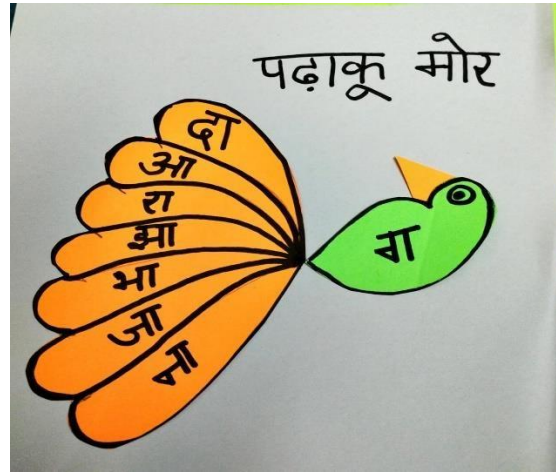 पढ़ाकू मोर
दा
आ
रा
झा
भा
जा
ना
ग